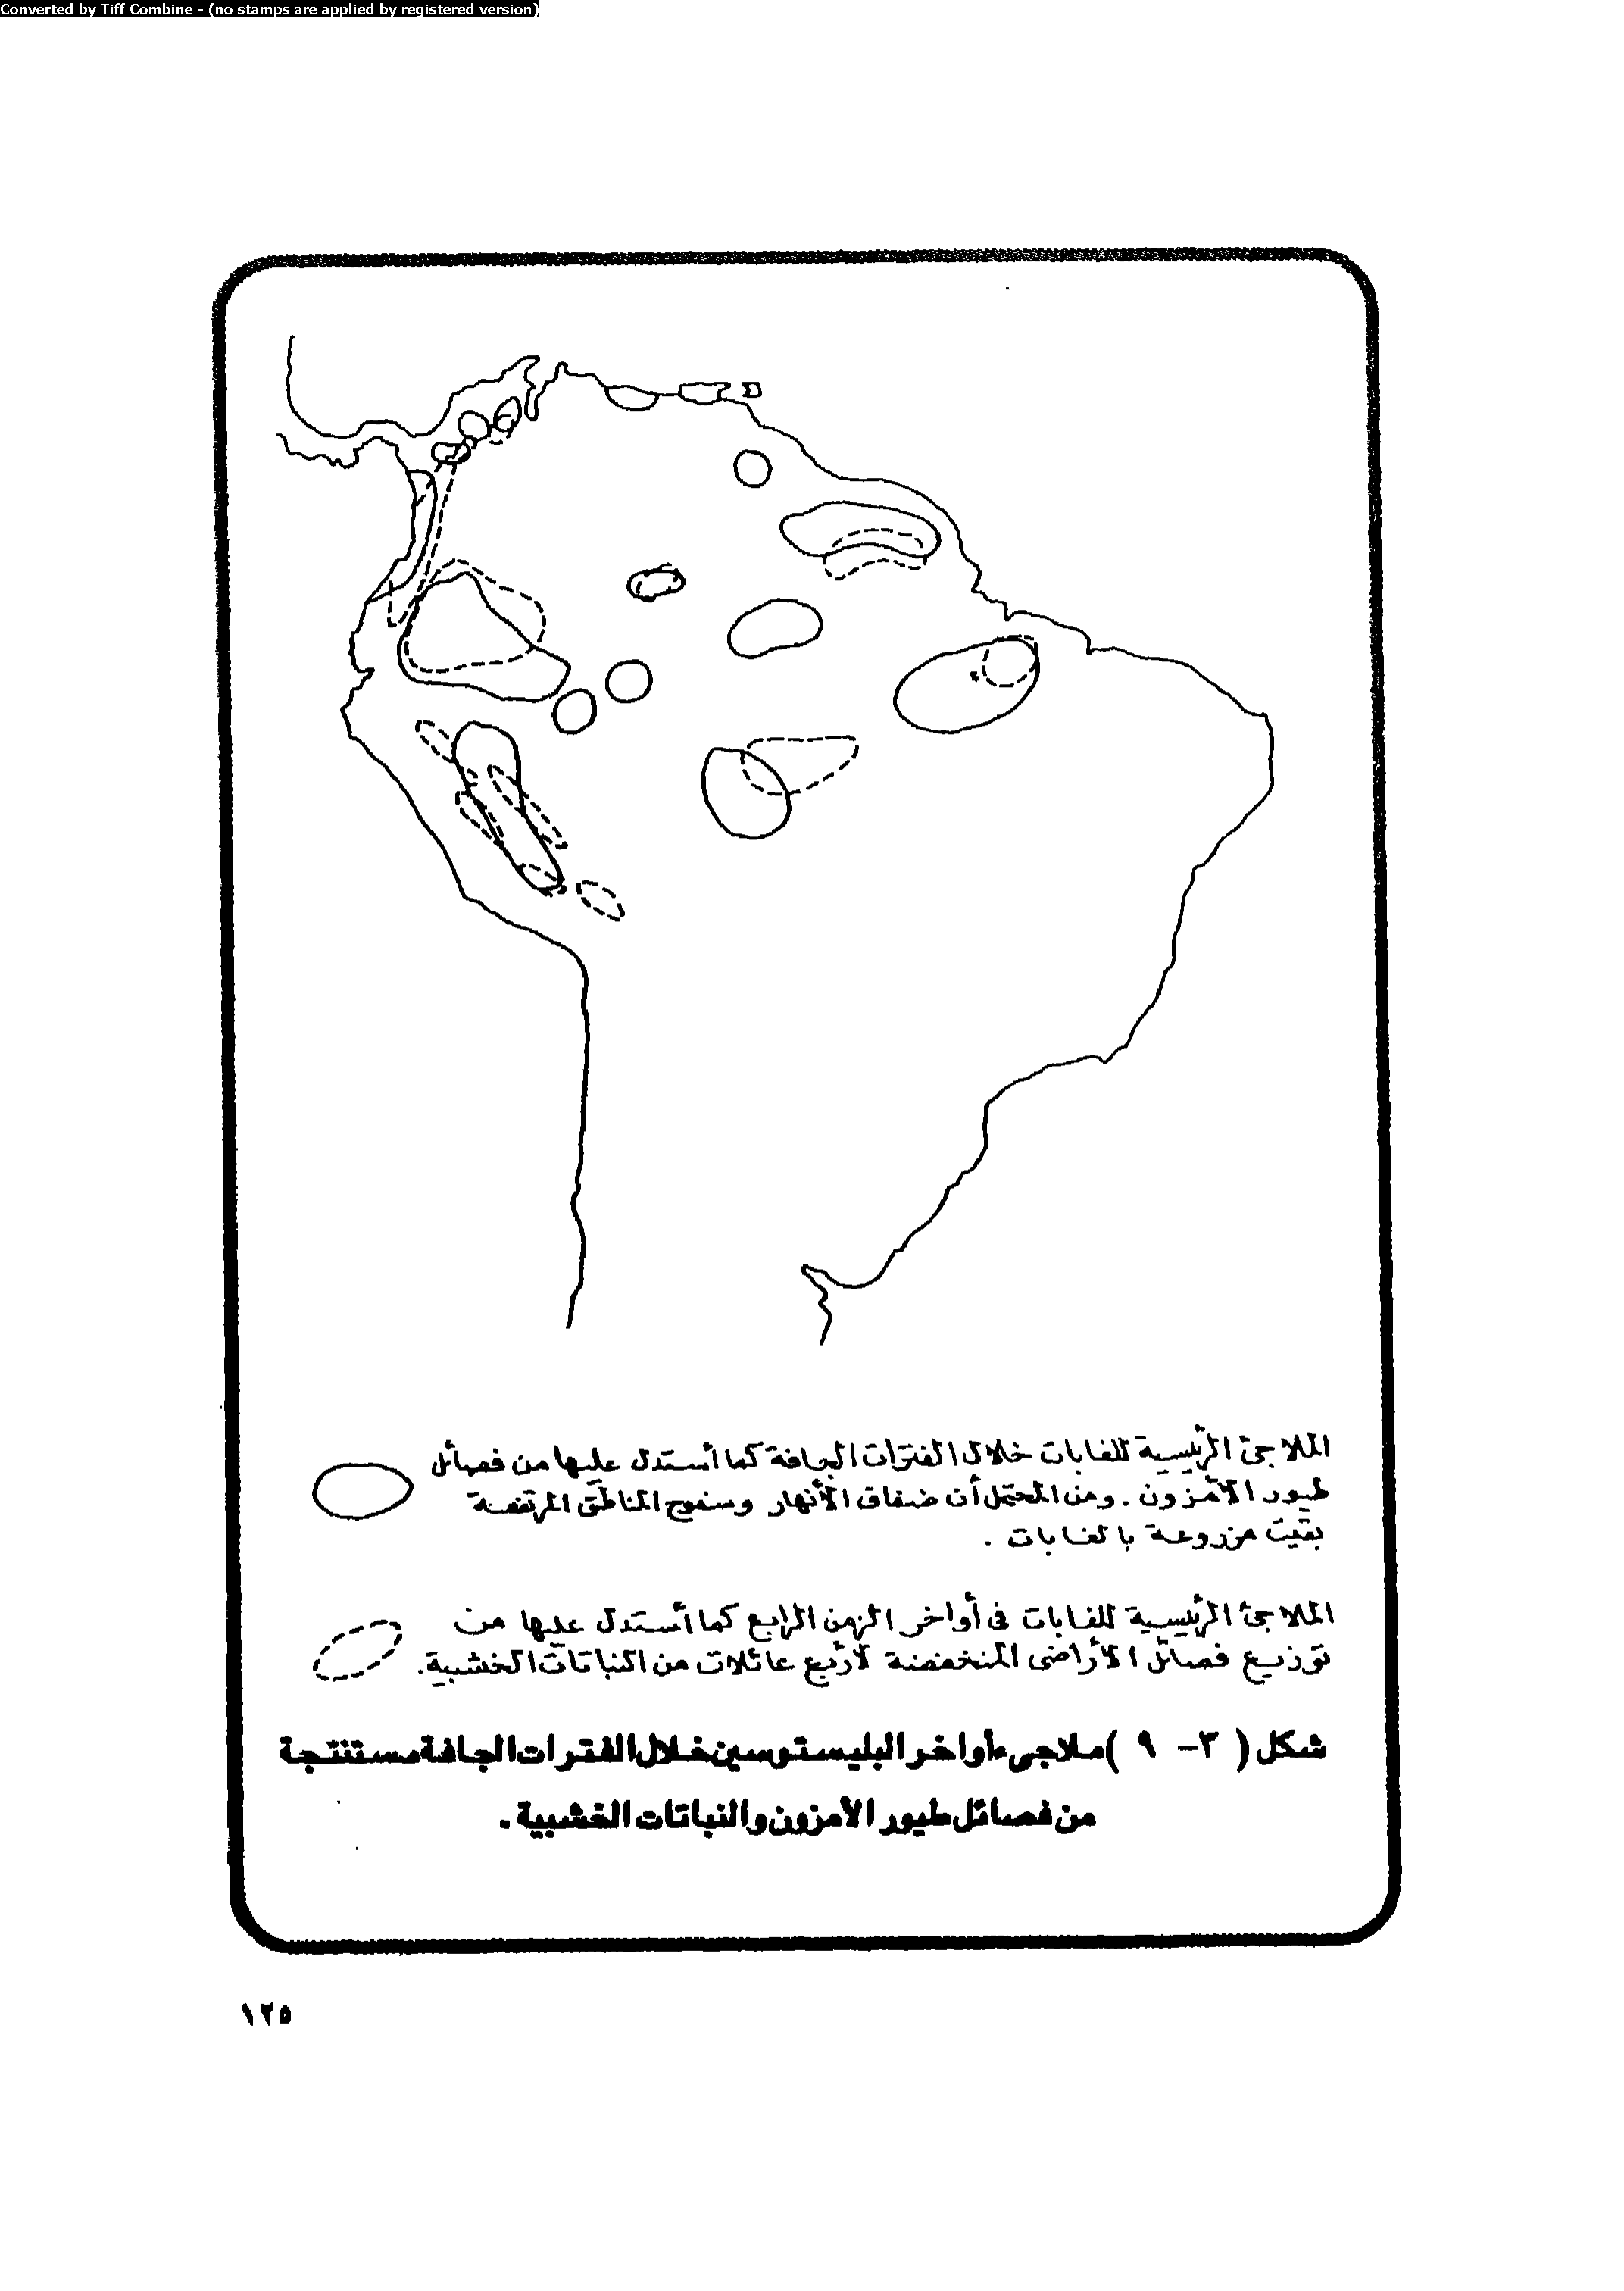 Converted by Tiff Combine - (no stamps are applied by registered version)
الملاجئ الرئيسية للغابات خلال الفترات الجافة كما أستدل عليها من فصائل
طيور الأمزون . ومن المحتمل أن ضفاف الأنهار وسفوح المناطق المرتفعة
بقيت مزروعة بالغابات .
الملاجئ الرئيسية للغابات فى أواخر الزمن الرابع كما أستدل عليها من
توزيع فصائل الأراضى المنخفضة لأربع عائلات من النباتات الخشبية .
شكل ( ٣ - ٩ ) ملاجىء أواخر البليستوسين خلال الفترات الجافة مستنتجة
من فصائل طيور الأمزون والنباتات الخشبية .
١٢٥